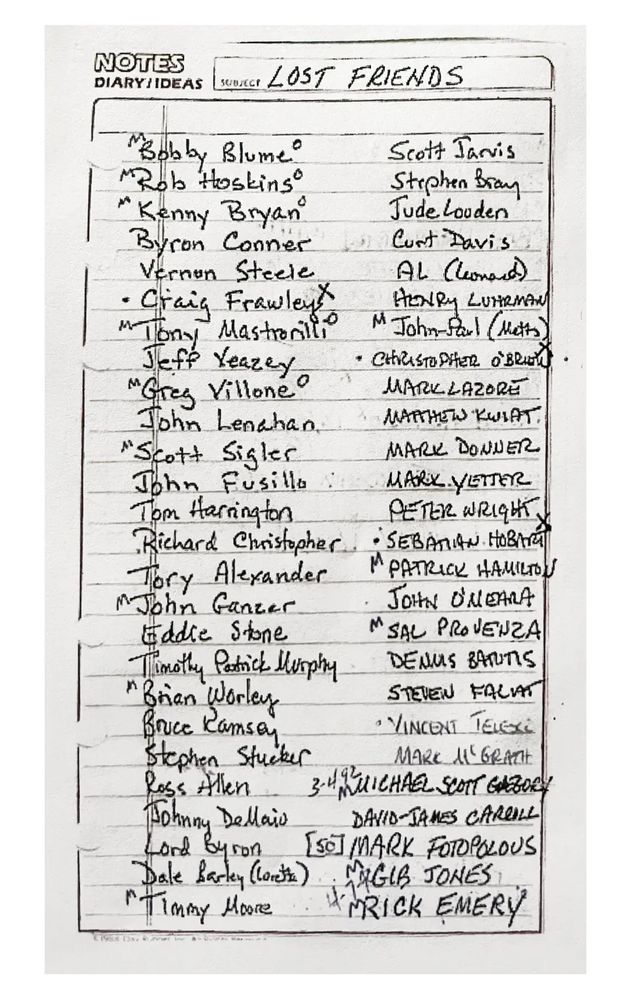 NOTES
DIARY/IDEAS
SUBJECT LOST FRIENDS
M Bobby Blume o
M Rob Hoskins o
M Kenny Bryan o
Byron Conner
Vernon Steele
• Craig Frawley X
M Tony Mastrorilli o
Jeff Veazey
M Greg Villone o
John Lenahan
M Scott Sigler
John Fusillo
Tom Harrington
Richard Christopher
Tory Alexander
M John Ganzer
Eddie Stone
Timothy Patrick Murphy
M Brian Worley
Bruce Ramsey
Stephen Stucker
Ross Allen
Johnny DeMaio
Lord Byron
Dale Barley (Loretta)
M Timmy Moore
Scott Jarvis
Stephen Bray
Jude Louden
Curt Davis
AL (Leonard)
HENRY LUHRMAN
M John-Paul (Metts)
• CHRISTOPHER O'BRIEN X
MARK LAZORE
MATTHEW KWIAT
MARK DONNER
MARK YETTER
PETER WRIGHT
• SEBATIAN HOBART X
M PATRICK HAMILTON
JOHN O'MEARA
M SAL PROVENZA
DENNIS BATUTIS
STEVEN FALAT
• VINCENT
MARK McGRATH
3-4-92 M MICHAEL SCOTT GREGORY
DAVID-JAMES CARROLL
[50] MARK FOTOPOLOUS
M GIB JONES
M RICK EMERY